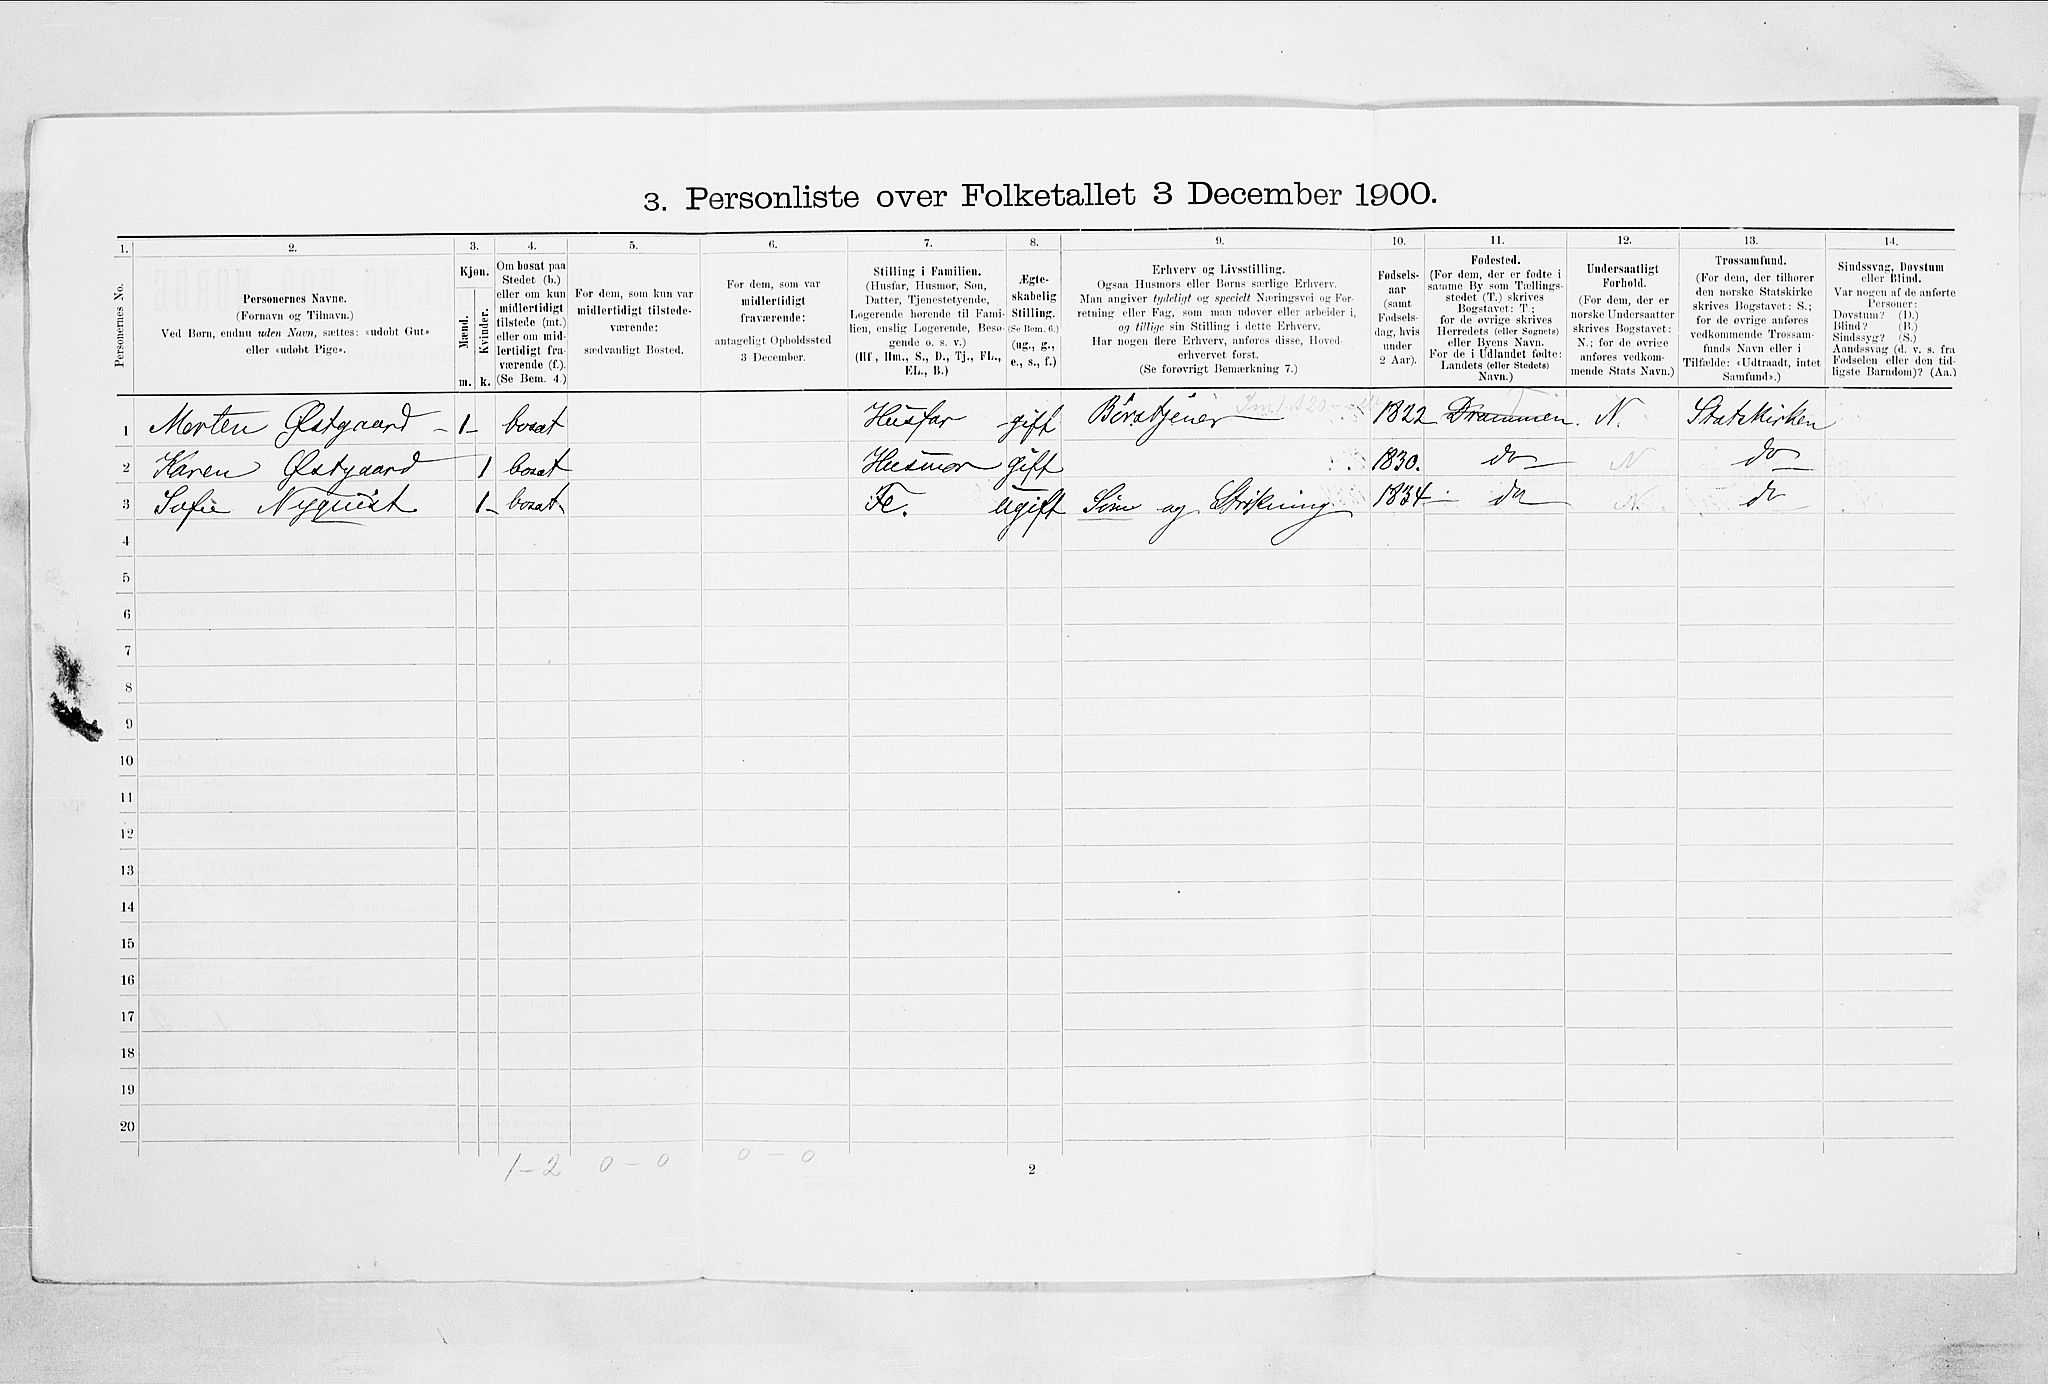 3. Personliste over Folketallet 3 December 1900.
1. 2. 3. 4. 5. 6. 7. 8. 9. 10. 11. 12. 13. 14.
Personernes No.
Personernes Navne.
(Fornavn og Tilnavn.)
Ved Børn, endnu uden Navn, sættes: «udøbt Gut»
eller «udøbt Pige».
Kjøn.
Mænd.
Kvinder.
m. k.
Om bosat paa
Stedet (b.)
eller om kun
midlertidigt
tilstede (mt.)
eller om mid-
lertidigt fra-
værende (f.).
(Se Bem. 4.)
For dem, som kun var
midlertidigt tilstede-
værende:
sædvanligt Bosted.
For dem, som var
midlertidigt
fraværende:
antageligt Opholdssted
3 December.
Stilling i Familien.
(Husfar, Husmor, Søn,
Datter, Tjenestetyende,
Logerende hørende til Fami-
lien, enslig Logerende, Besø-
gende o. s. v.)
(Hf, Hm., S., D., Tj., FL.,
EL., B.)
Ægte-
skabelig
Stilling.
(Se Bem. 6.)
(ug., g.,
e., s., f.)
Erhverv og Livsstilling.
Ogsaa Husmors eller Børns særlige Erhverv.
Man angiver tydeligt og specielt Næringsvei og For-
retning eller Fag, som man udøver eller arbeider i,
og tillige sin Stilling i dette Erhverv.
Har nogen flere Erhverv, anføres disse, Hoved-
erhvervet først.
(Se forøvrigt Bemærkning 7.)
Fødsels-
aar
(samt
Fødsels-
dag, hvis
under
2 Aar).
Fødested.
(For dem, der er fødte i
samme By som Tællings-
stedet (T.) skrives
Bogstavet: T.;
for de øvrige skrives
Herredets (eller Sognets)
eller Byens Navn.
For de i Udlandet fødte:
Landets (eller Stedets)
Navn.)
Undersaatligt
Forhold.
(For dem, der er
norske Undersaatter
skrives Bogstavet:
N.; for de øvrige
anføres vedkom-
mende Stats Navn.)
Trossamfund.
(For dem, der tilhører
den norske Statskirke
skrives Bogstavet: S.;
for de øvrige anføres
vedkommende Trossam-
funds Navn eller i
Tilfælde: «Udtraadt, intet
Samfund».)
Sindssvag, Døvstum
eller Blind.
Var nogen af de anførte
Personer:
Døvstum? (D.)
Blind? (B.)
Sindssyg? (S.)
Aandssvag (d. v. s. fra
Fødselen eller den tid-
ligste Barndom)? (Aa.)
1 Merten Østgaard – 1– bosat Husfar gift Börstjener 1822 Drammen. N. Statskirken
2 Karen Østgaard 1 bosat Husmor gift 1830. do N do
3 Sofie Nyquist 1– bosat. Fl. Ugift Söm og Strikning 1834. do N. do
4
5
6
7
8
9
10
11
12
13
14
15
16
17
18
19
20
1–2 0–0 0–0
2